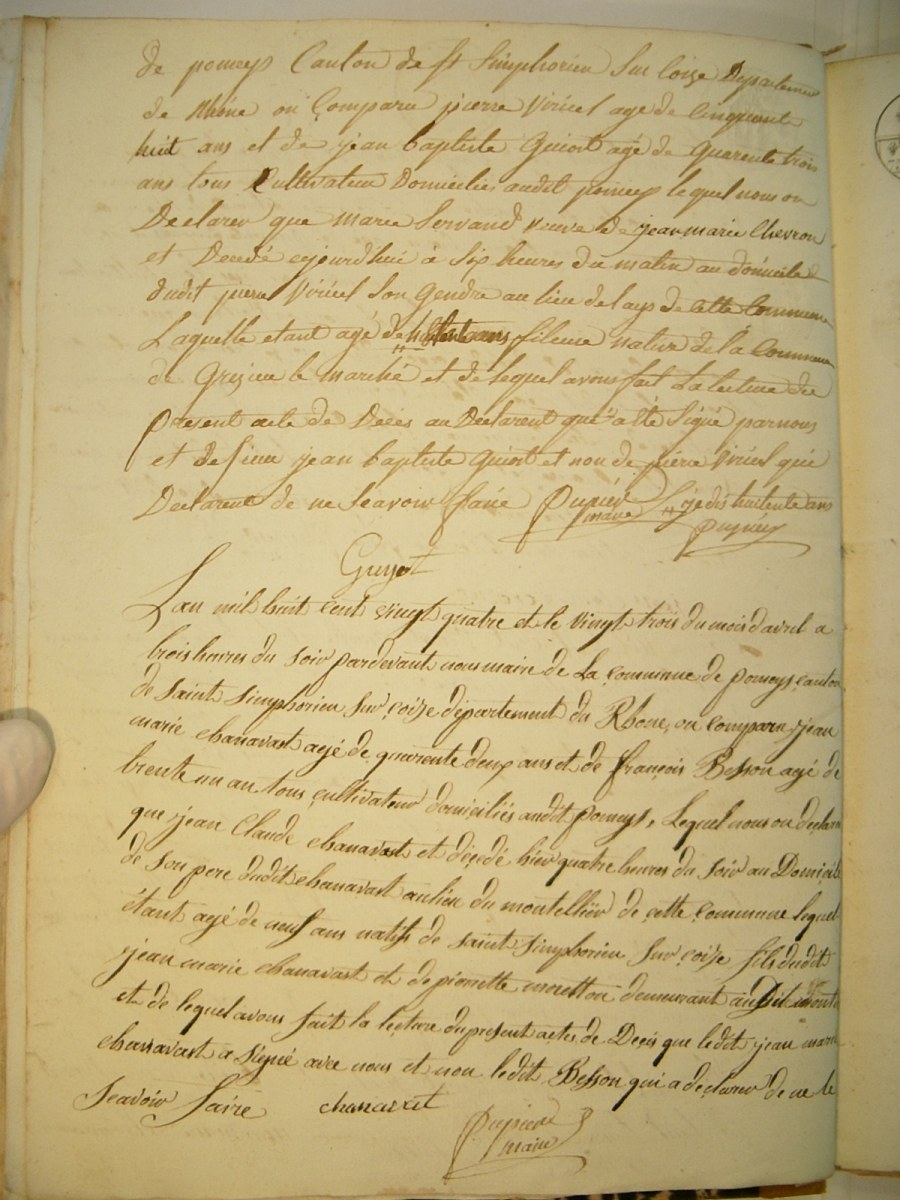 de pomeys Canton de st Simphorien Sur Coize Departement
de Rhône ou Comparu pierre Viricel age de Cinquante
huit ans et de jean baptiste Guiost agé de quarente trois
ans tous Cultivateur Domiciliés audit pomeys lequel nous on
Declarer que marie Servand veuve de jean marie Chevron
et Decedé cejourd'hui à Six heures du matin au domicile
dudit pierre Viricel Son Gendre au lieu de lays de cette Commune
Laquelle etant agé de fileuse native de la Commune
de Grezieu le marché et de lequel avons fait La lecture du
présent acte de Décès au Declarent qu'a été Signé par nous
et de sieur jean baptiste Guiost et non de pierre Viricel qui
Declarent de ne Scavoir faire Dupuier maire Je dis huitente ans
Guyot
L'an mil huit cent vingt quatre et le vingt trois du mois d'avril a
trois heures du soir pardevant nous maire de La commune de pomeys canton
de saint simphorien sur coize département du Rhone, ou comparu jean
marie chanavast agé de quarente deux ans et de françois Besson agé de
trente un an tous cultivateur domiciliés audit pomeys, Lequel nous on declarer
que jean Claude chanavast et décédé hier quatre heures du soir au Domicile
de son pere dudit chanavast au lieu du montellier de cette commune lequel
étant agé de neuf ans natifs de saint simphorien sur coize fils dudit
jean marie chanavast et de pierrette demeurant audit
et de lequel avons fait la lecture du présent actes de Decés que ledit jean marie
chanavast a signé avec nous et non ledit Besson qui a declarer de ne le
Scavoir faire chanavat
maire